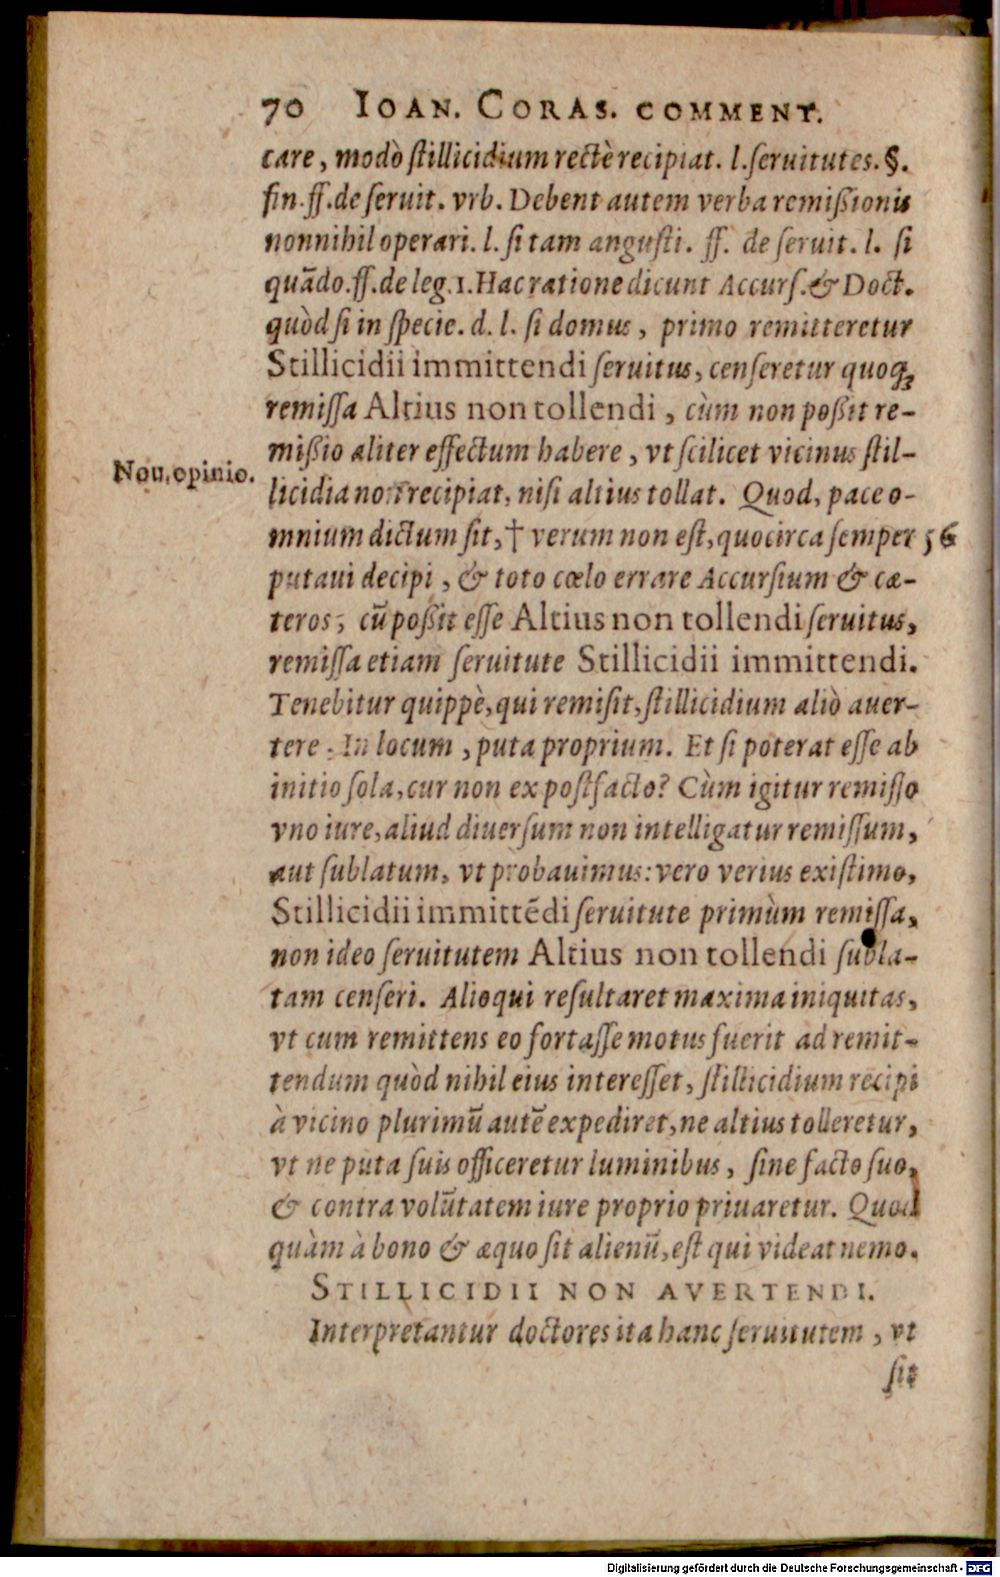 70 IOAN. CORAS. COMMENT.
care, modò ſtillicidium rectè recipiat. l. ſeruitutes. §.
fin. ff. de ſeruit. vrb. Debent autem verba remißionis
nonnihil operari. l. ſi tam anguſti. ff. de ſeruit. l. ſi
quãdo. ff. de leg. 1. Hac ratione dicunt Accurſ. & Doct.
quòd ſi in ſpecie. d. l. ſi domus, primo remitteretur
Stillicidii immittendi ſeruitus, cenſeretur quoq;
remiſſa Altius non tollendi, cùm non poßit re-
mißio aliter effectum habere, vt ſcilicet vicinus ſtil-
Nou. opinio.
licidia non recipiat, niſi altius tollat. Quod, pace o-
mnium dictum ſit, † verum non eſt, quocirca ſemper 56
putaui decipi, & toto cœlo errare Accurſium & cæ-
teros, cũ poßit eſſe Altius non tollendi ſeruitus,
remiſſa etiam ſeruitute Stillicidii immittendi.
Tenebitur quippè, qui remiſit, ſtillicidium aliò auer-
tere. In locum, puta proprium. Et ſi poterat eſſe ab
initio ſola, cur non ex poſtfacto? Cùm igitur remiſſo
vno iure, aliud diuerſum non intelligatur remiſſum,
aut ſublatum, vt probauimus: vero verius exiſtimo,
Stillicidii immittẽdi ſeruitute primùm remiſſa,
non ideo ſeruitutem Altius non tollendi ſubla-
tam cenſeri. Alioqui reſultaret maxima iniquitas,
vt cum remittens eo fortaſſe motus fuerit ad remit-
tendum quòd nihil eius intereſſet, ſtillicidium recipi
à vicino plurimũ autẽ expediret, ne altius tolleretur,
vt ne puta ſuis officeretur luminibus, ſine facto ſuo,
& contra volũtatem iure proprio priuaretur. Quod
quàm à bono & æquo ſit alienũ, eſt qui videat nemo.
STILLICIDII NON AVERTENDI.
Interpretantur doctores ita hanc ſeruitutem, vt
ſit
Digitalisierung gefördert durch die Deutsche Forschungsgemeinschaft - DFG